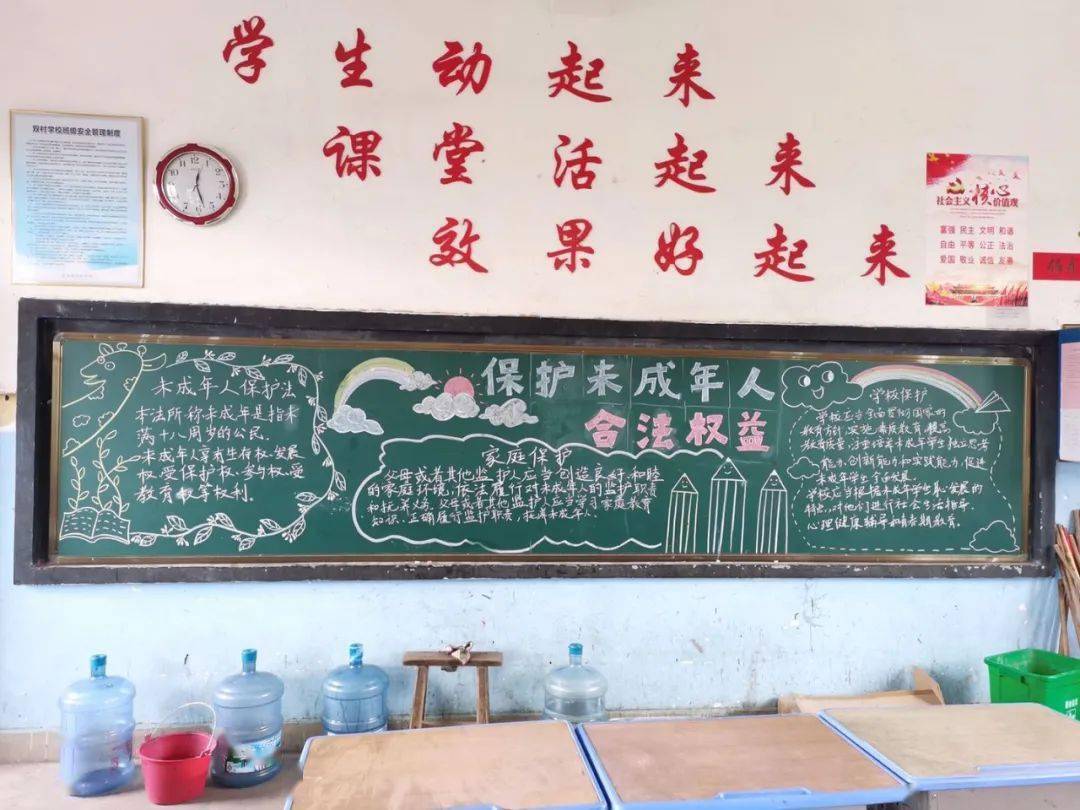 学生动起来
课堂活起来
效果好起来
双村学校班级安全管理制度
社会主义核心价值观
富强 民主 文明 和谐
自由 平等 公正 法治
爱国 敬业 诚信 友善
保护未成年人
合法权益
未成年人保护法
本法所称未成年是指未
满十八周岁的公民.
未成年人享有生存权.发展
权.受保护权.参与权.受
教育权等权利.
家庭保护
父母或者其他监护人应当创造良好和睦
的家庭环境,依法履行对未成年人的监护职责
和抚养义务.父母或者其他监护人应当学习家庭教育
知识,正确履行监护职责,抚养未成年人.
学校保护
学校应当全面贯彻国家的
教育方针,实施素质教育,提高
教育质量,注重培养未成年学生独立思考
能力,创新能力和实践能力,促进
未成年学生全面发展.
学校应当根据未成年学生身心发展的
特点,对他们进行社会生活指导.
心理健康辅导和青春期教育.